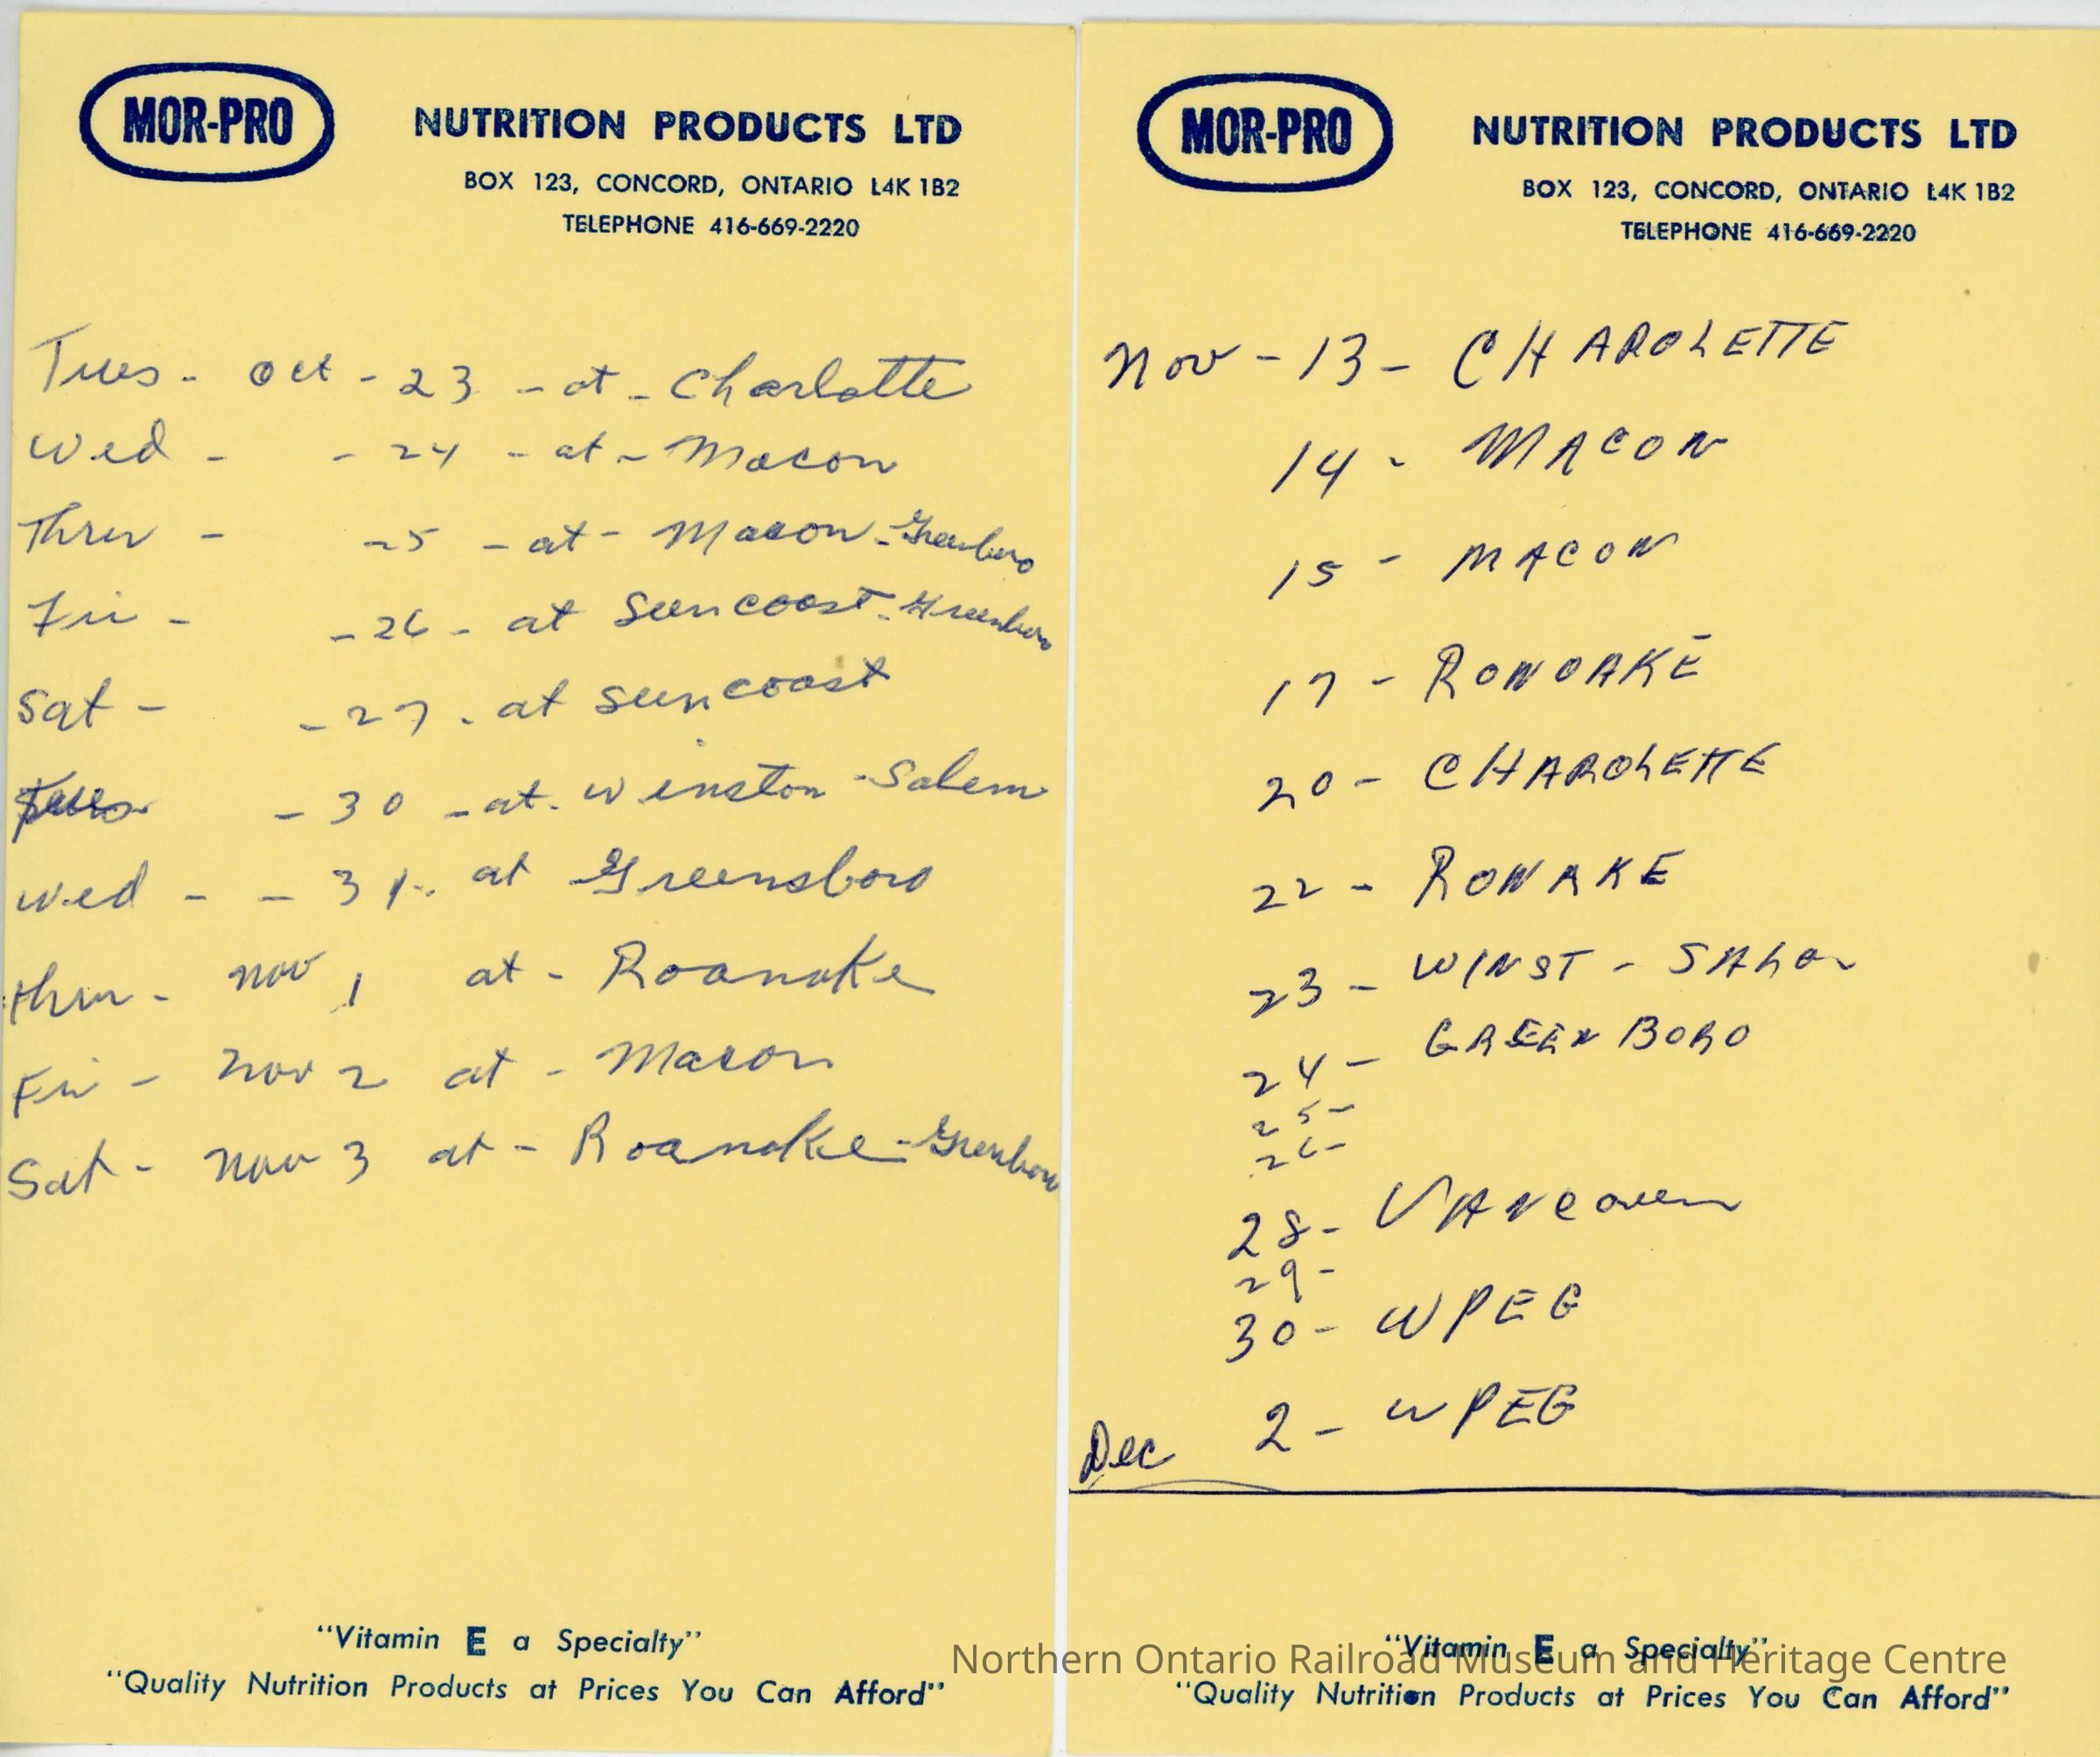 MOR-PRO
NUTRITION PRODUCTS LTD
BOX 123, CONCORD, ONTARIO L4K 1B2
TELEPHONE 416-669-2220
Tues - Oct - 23 - at - Charlotte
Wed - - 24 - at - Macon
Thru - 25 - at - Macon - Greenboro
Fri - - 26 - at Suncoast - Greenboro
Sat - - 27 - at Suncoast
Tues - 30 - at - Winston - Salem
Wed - - 31 - at Greensboro
thru - nov 1 at - Roanoke
Fri - nov 2 at - Macon
Sat - nov 3 at - Roanoke - Greenboro
"Vitamin E a Specialty"
"Quality Nutrition Products at Prices You Can Afford"
MOR-PRO
NUTRITION PRODUCTS LTD
BOX 123, CONCORD, ONTARIO L4K 1B2
TELEPHONE 416-669-2220
Nov - 13 - CHAROLETTE
14 - MACON
15 - MACON
17 - RONOAKE
20 - CHAROLETTE
22 - RONAKE
23 - WINST - SALOM
24 - GREENBORO
25 -
26 -
28 - VANCOUVER
29 -
30 - WPEG
Dec 2 - WPEG
"Vitamin E a Specialty"
"Quality Nutrition Products at Prices You Can Afford"
Northern Ontario Railroad Museum and Heritage Centre